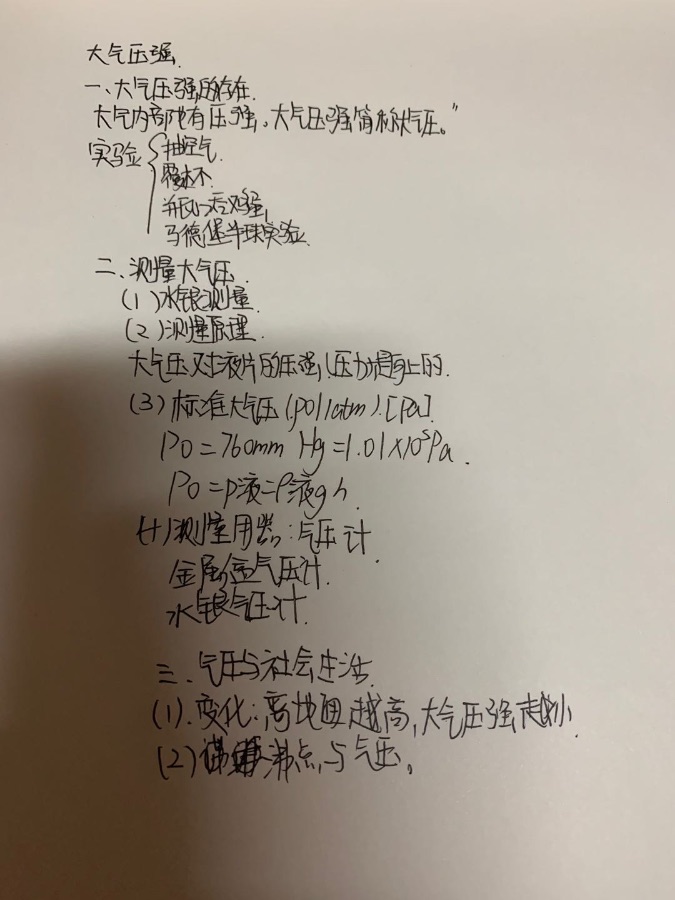 大气压强.
一、大气压强的存在.
大气内部也有压强。大气压强简称大气压。"
实验 { 抽空气.
覆水杯
瓶
马德堡半球实验.
二、测量大气压.
(1)水银测量.
(2)测量原理.
大气压对液片的压强,(压力)是向上的.
(3)标准大气压(p01atm).[Pa].
P0=760mm Hg=1.01×10⁵Pa.
P0=p液=ρ液gh.
测量用器:气压计.
金属盒气压计.
水银气压计.
三.气压与社会生活.
(1).变化:离地面越高,大气压强越小.
(2)沸点与气压。